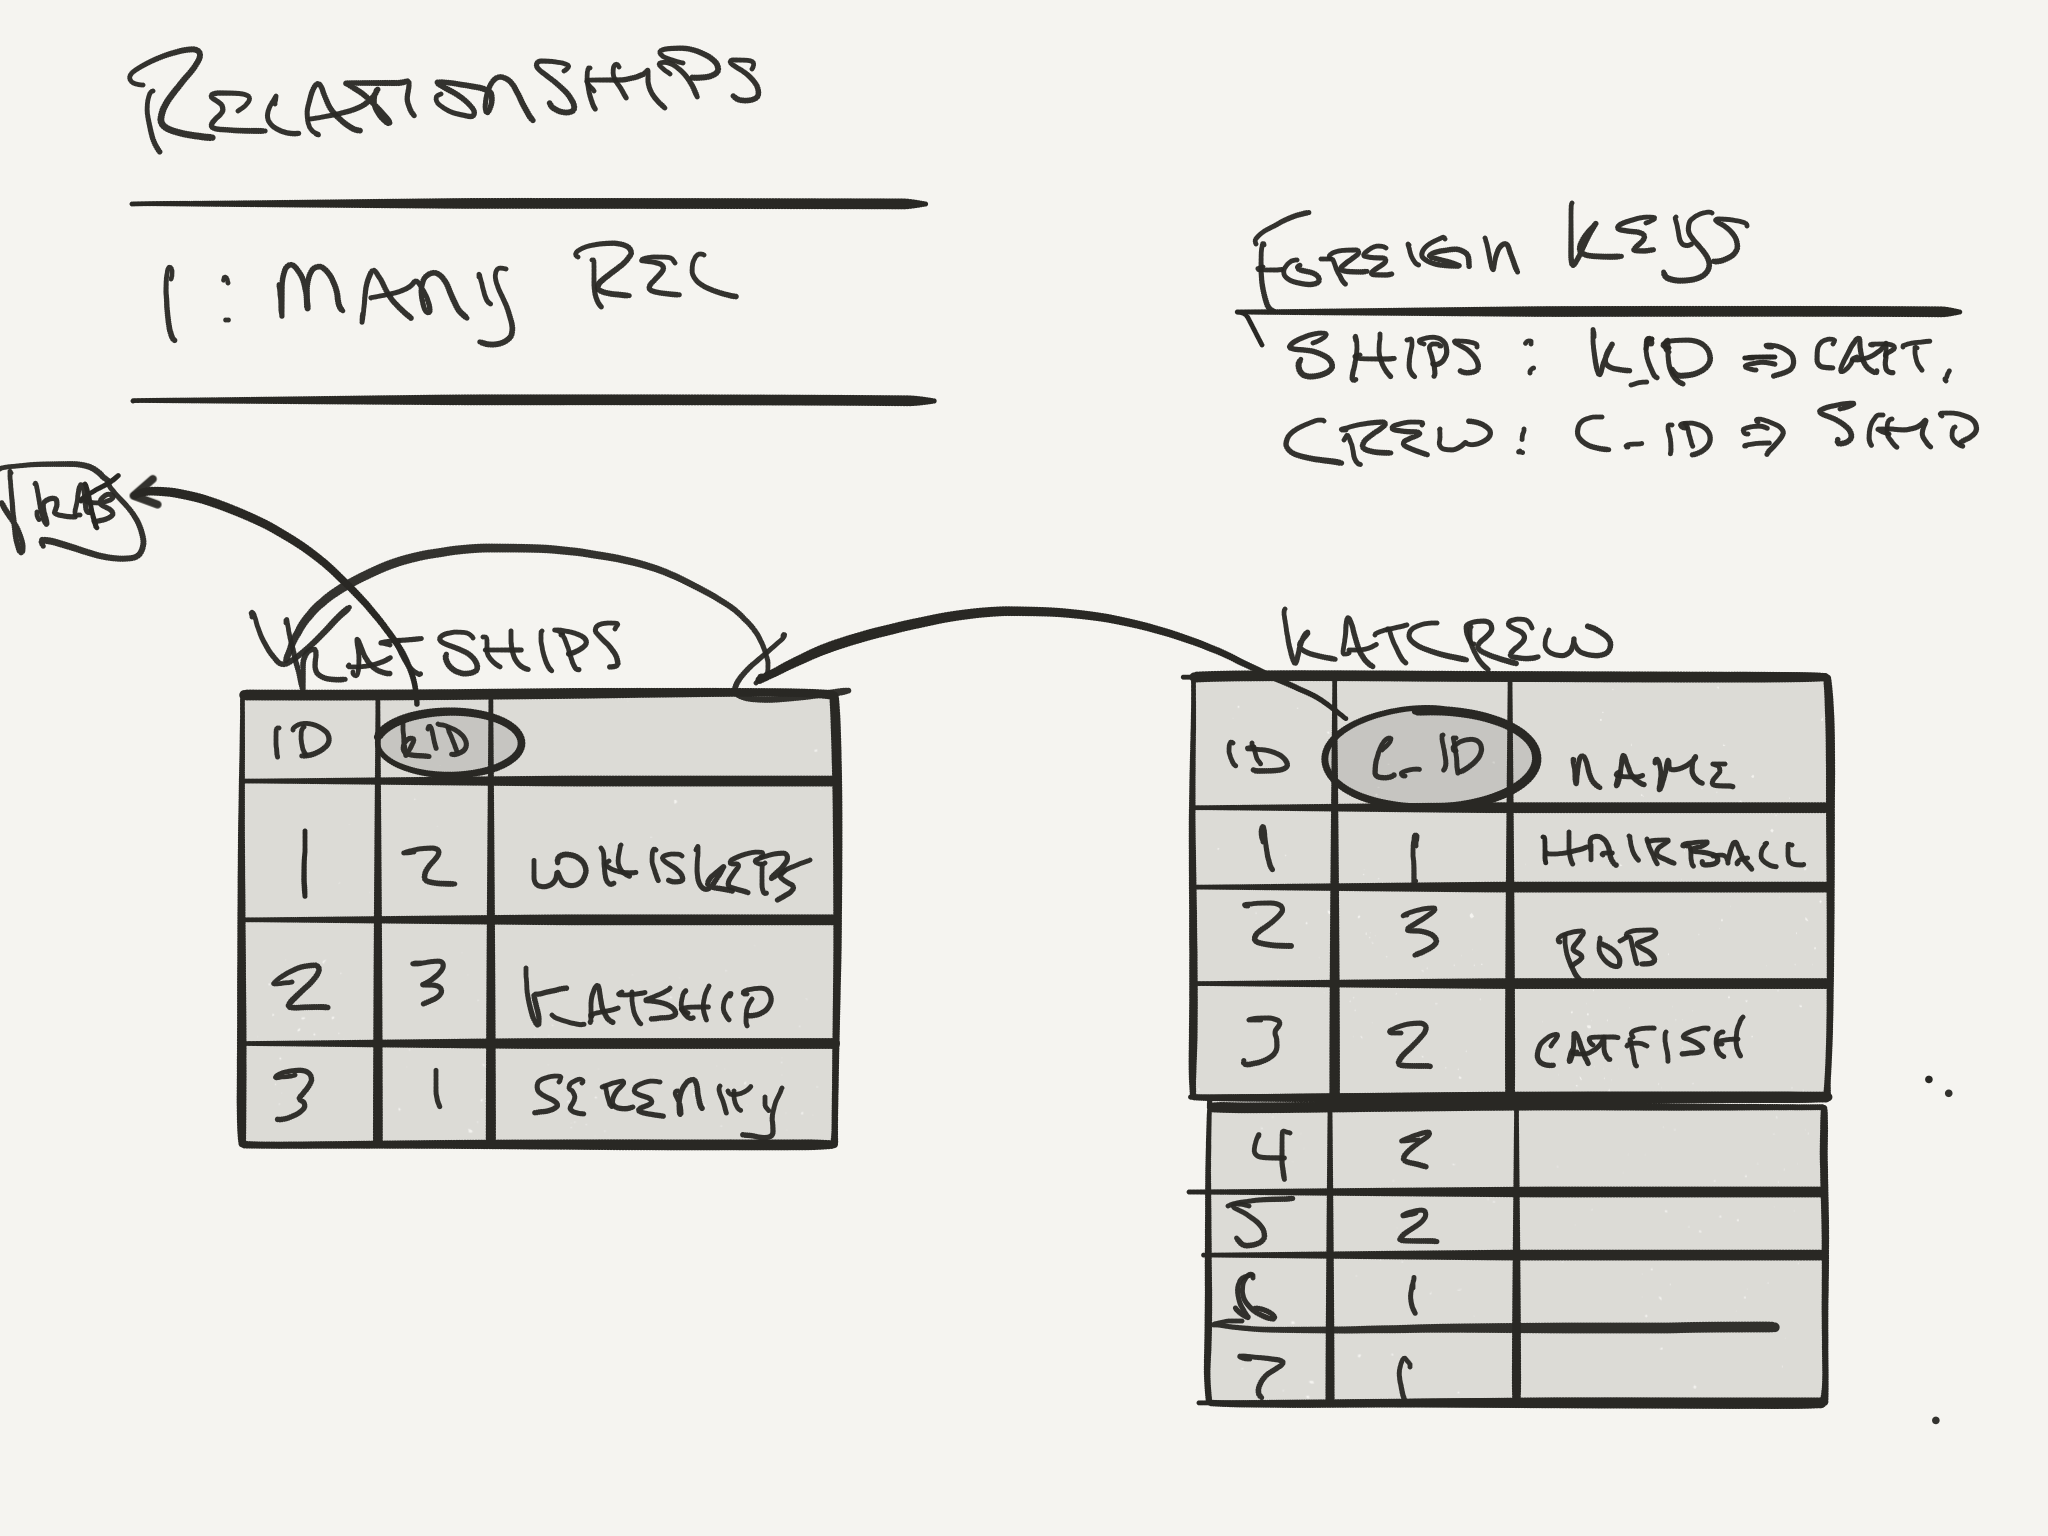 RELATIONSHIPS
1 : MANY REL
FOREIGN KEYS
SHIPS : K_ID => CAPT.
CREW : C_ID => SHIP
KATS
KATSHIPS
ID K_ID
1 2 WHISKERS
2 3 KATSHIP
3 1 SERENITY
KATCREW
ID C_ID NAME
1 1 HAIRBALL
2 3 BOB
3 2 CATFISH
4 2
5 2
6 1
7 1